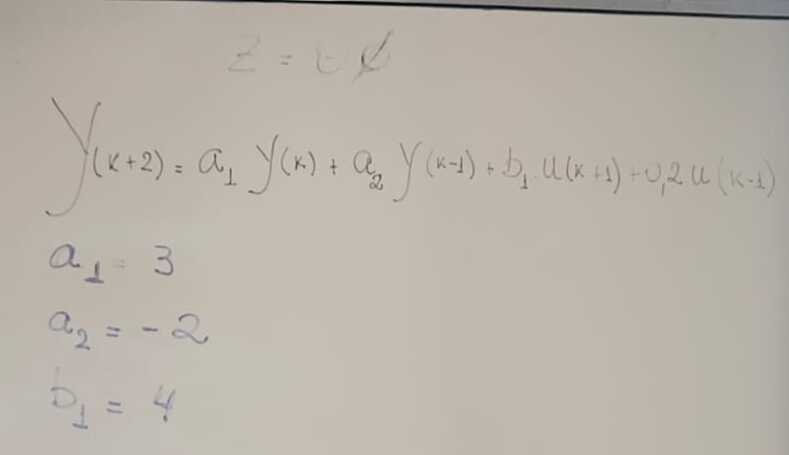 Z =
y(k+2) = a₁ y(k) + a₂ y(k-1) + b₁ u(k+1) + 0,2 u(k-1)
a₁ = 3
a₂ = -2
b₁ = 4